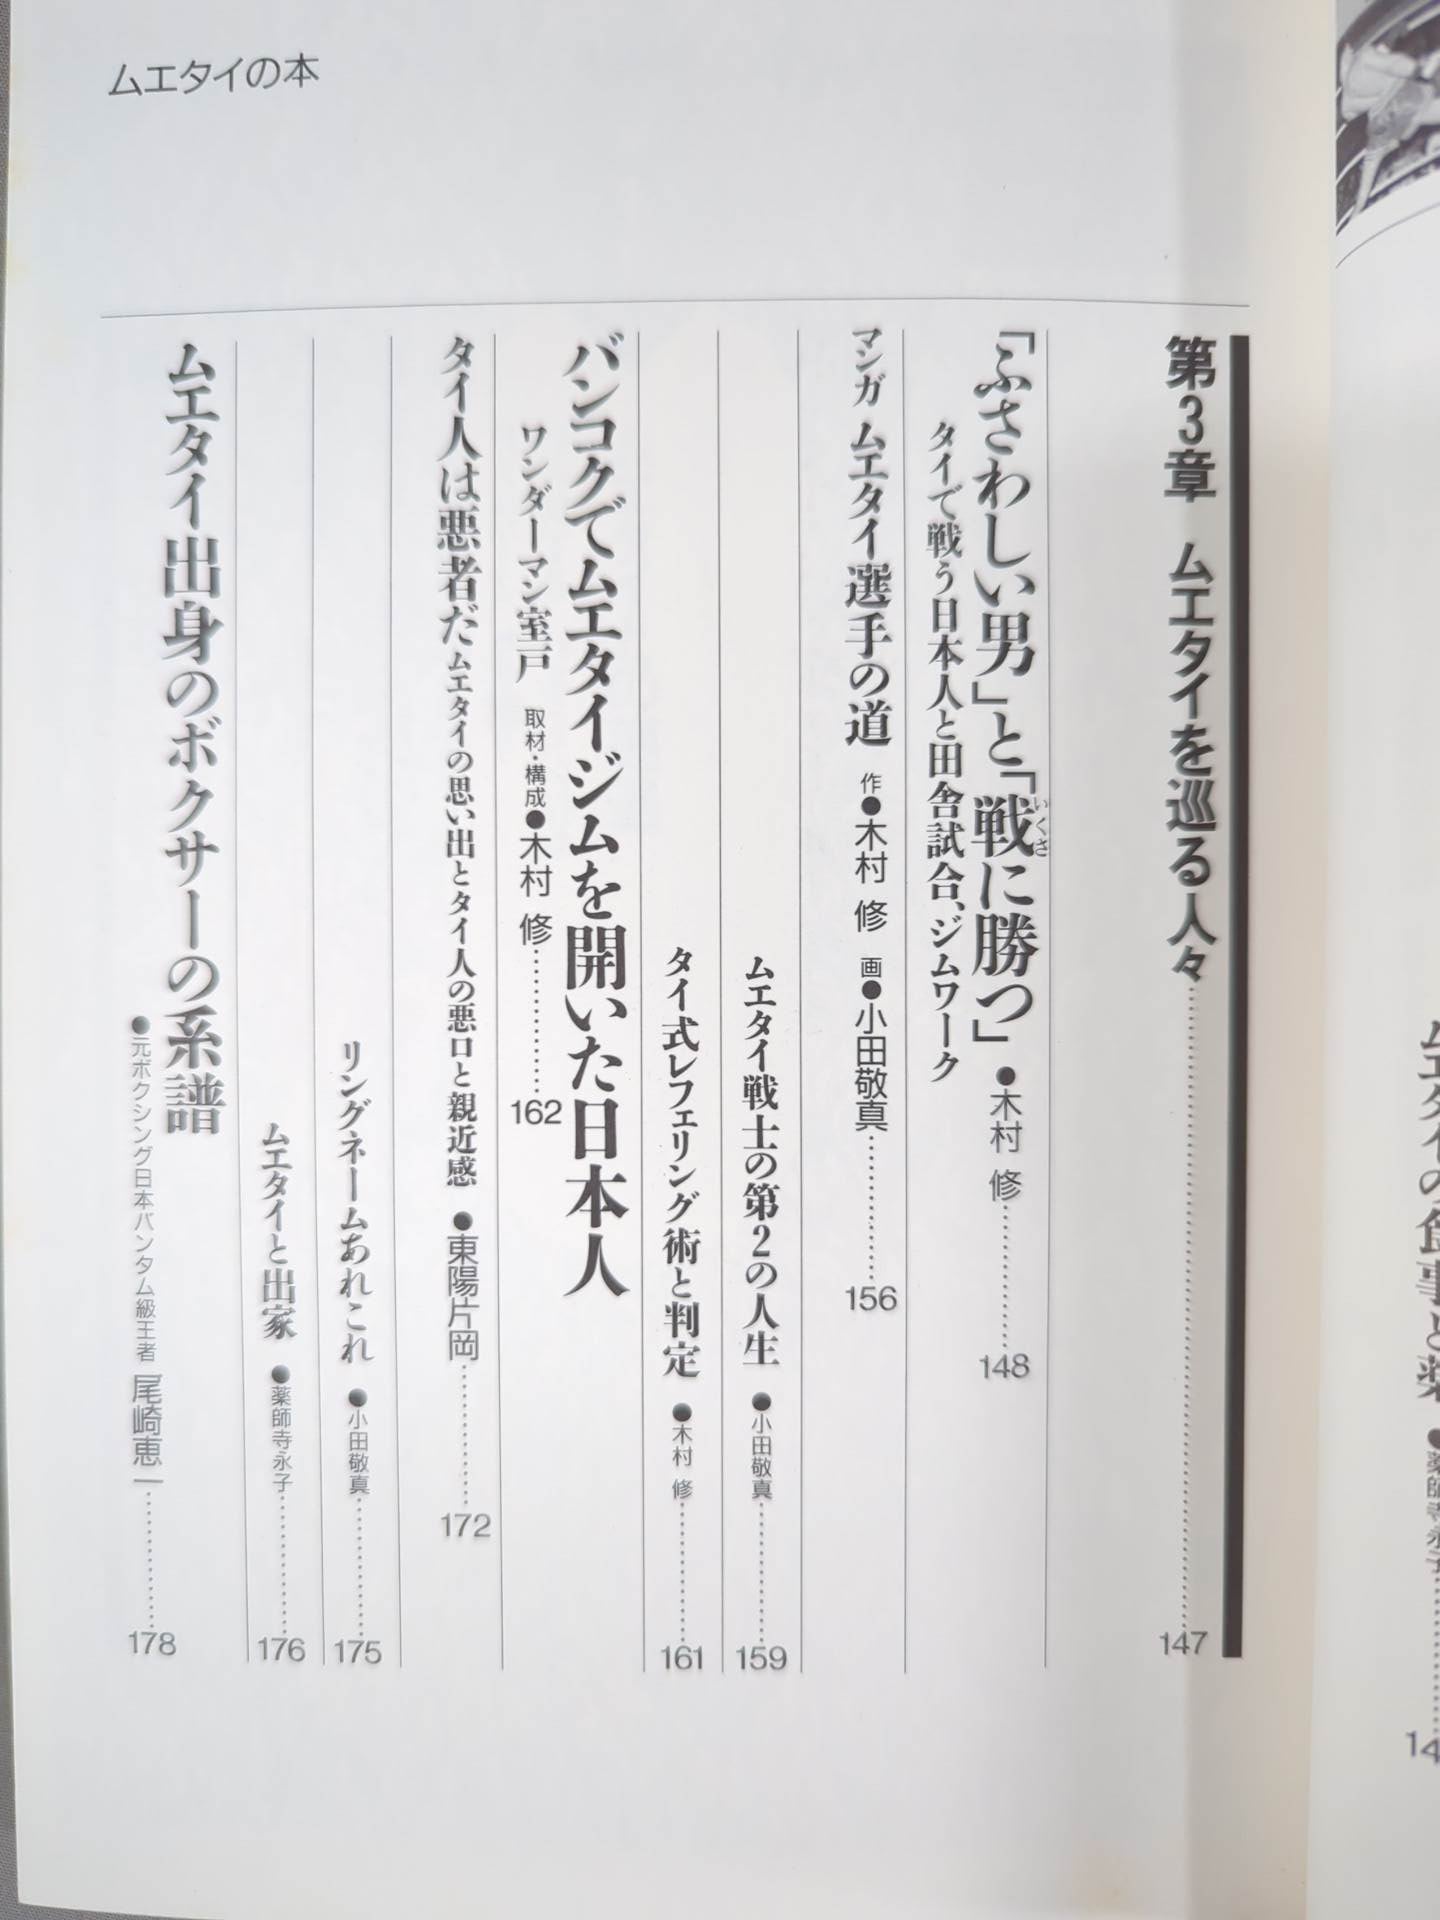 ムエタイの本
第3章 ムエタイを巡る人々 147
「ふさわしい男」と「戦に勝つ」 ●木村 修 148
いくさ
タイで戦う日本人と田舎試合、ジムワーク
マンガ ムエタイ選手の道 作●木村 修 画●小田敬真 156
ムエタイ戦士の第2の人生 ●小田敬真 159
タイ式レフェリング術と判定 ●木村 修 161
バンコクでムエタイジムを開いた日本人
ワンダーマン室戸 取材・構成●木村 修 162
タイ人は悪者だ ムエタイの思い出とタイ人の悪口と親近感 ●東陽片岡 172
リングネームあれこれ ●小田敬真 175
ムエタイと出家 ●薬師寺永子 176
ムエタイ出身のボクサーの系譜
●元ボクシング日本バンタム級王者 尾崎恵一 178